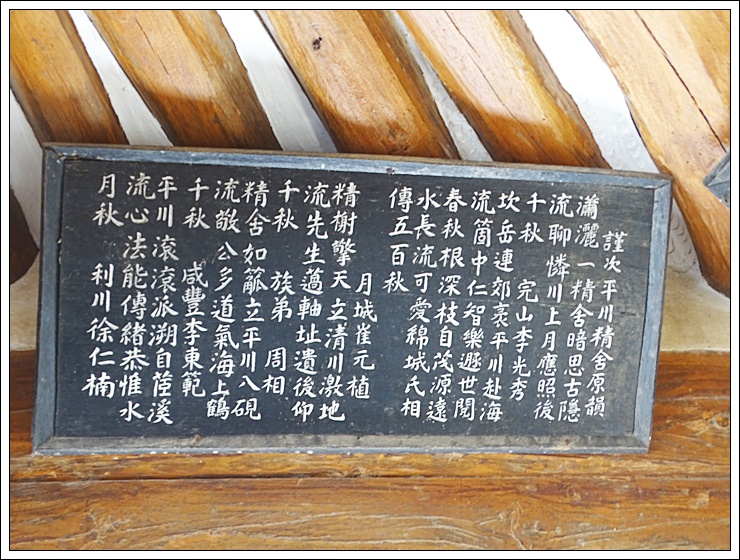 謹次平川精舍原韻
瀟灑一精舍暗思古隱
流聊憐川上月應照後
千秋 完山李光秀
坎岳連郊裏平川赴海
流箇中仁智樂遯世閱
春秋根深枝自茂源遠
水長流可愛綿城氏相
傳五百秋
月城崔元植
精榭擎天立清川激地
流先生薖軸址遺後仰
千秋 族弟 周相
精舍如觚立平川八硯
流敬公多道氣海上鶴
千秋 咸豐李東範
平川滾滾派溯自溪
流心法能傳緒恭惟水
月秋 利川徐仁楠